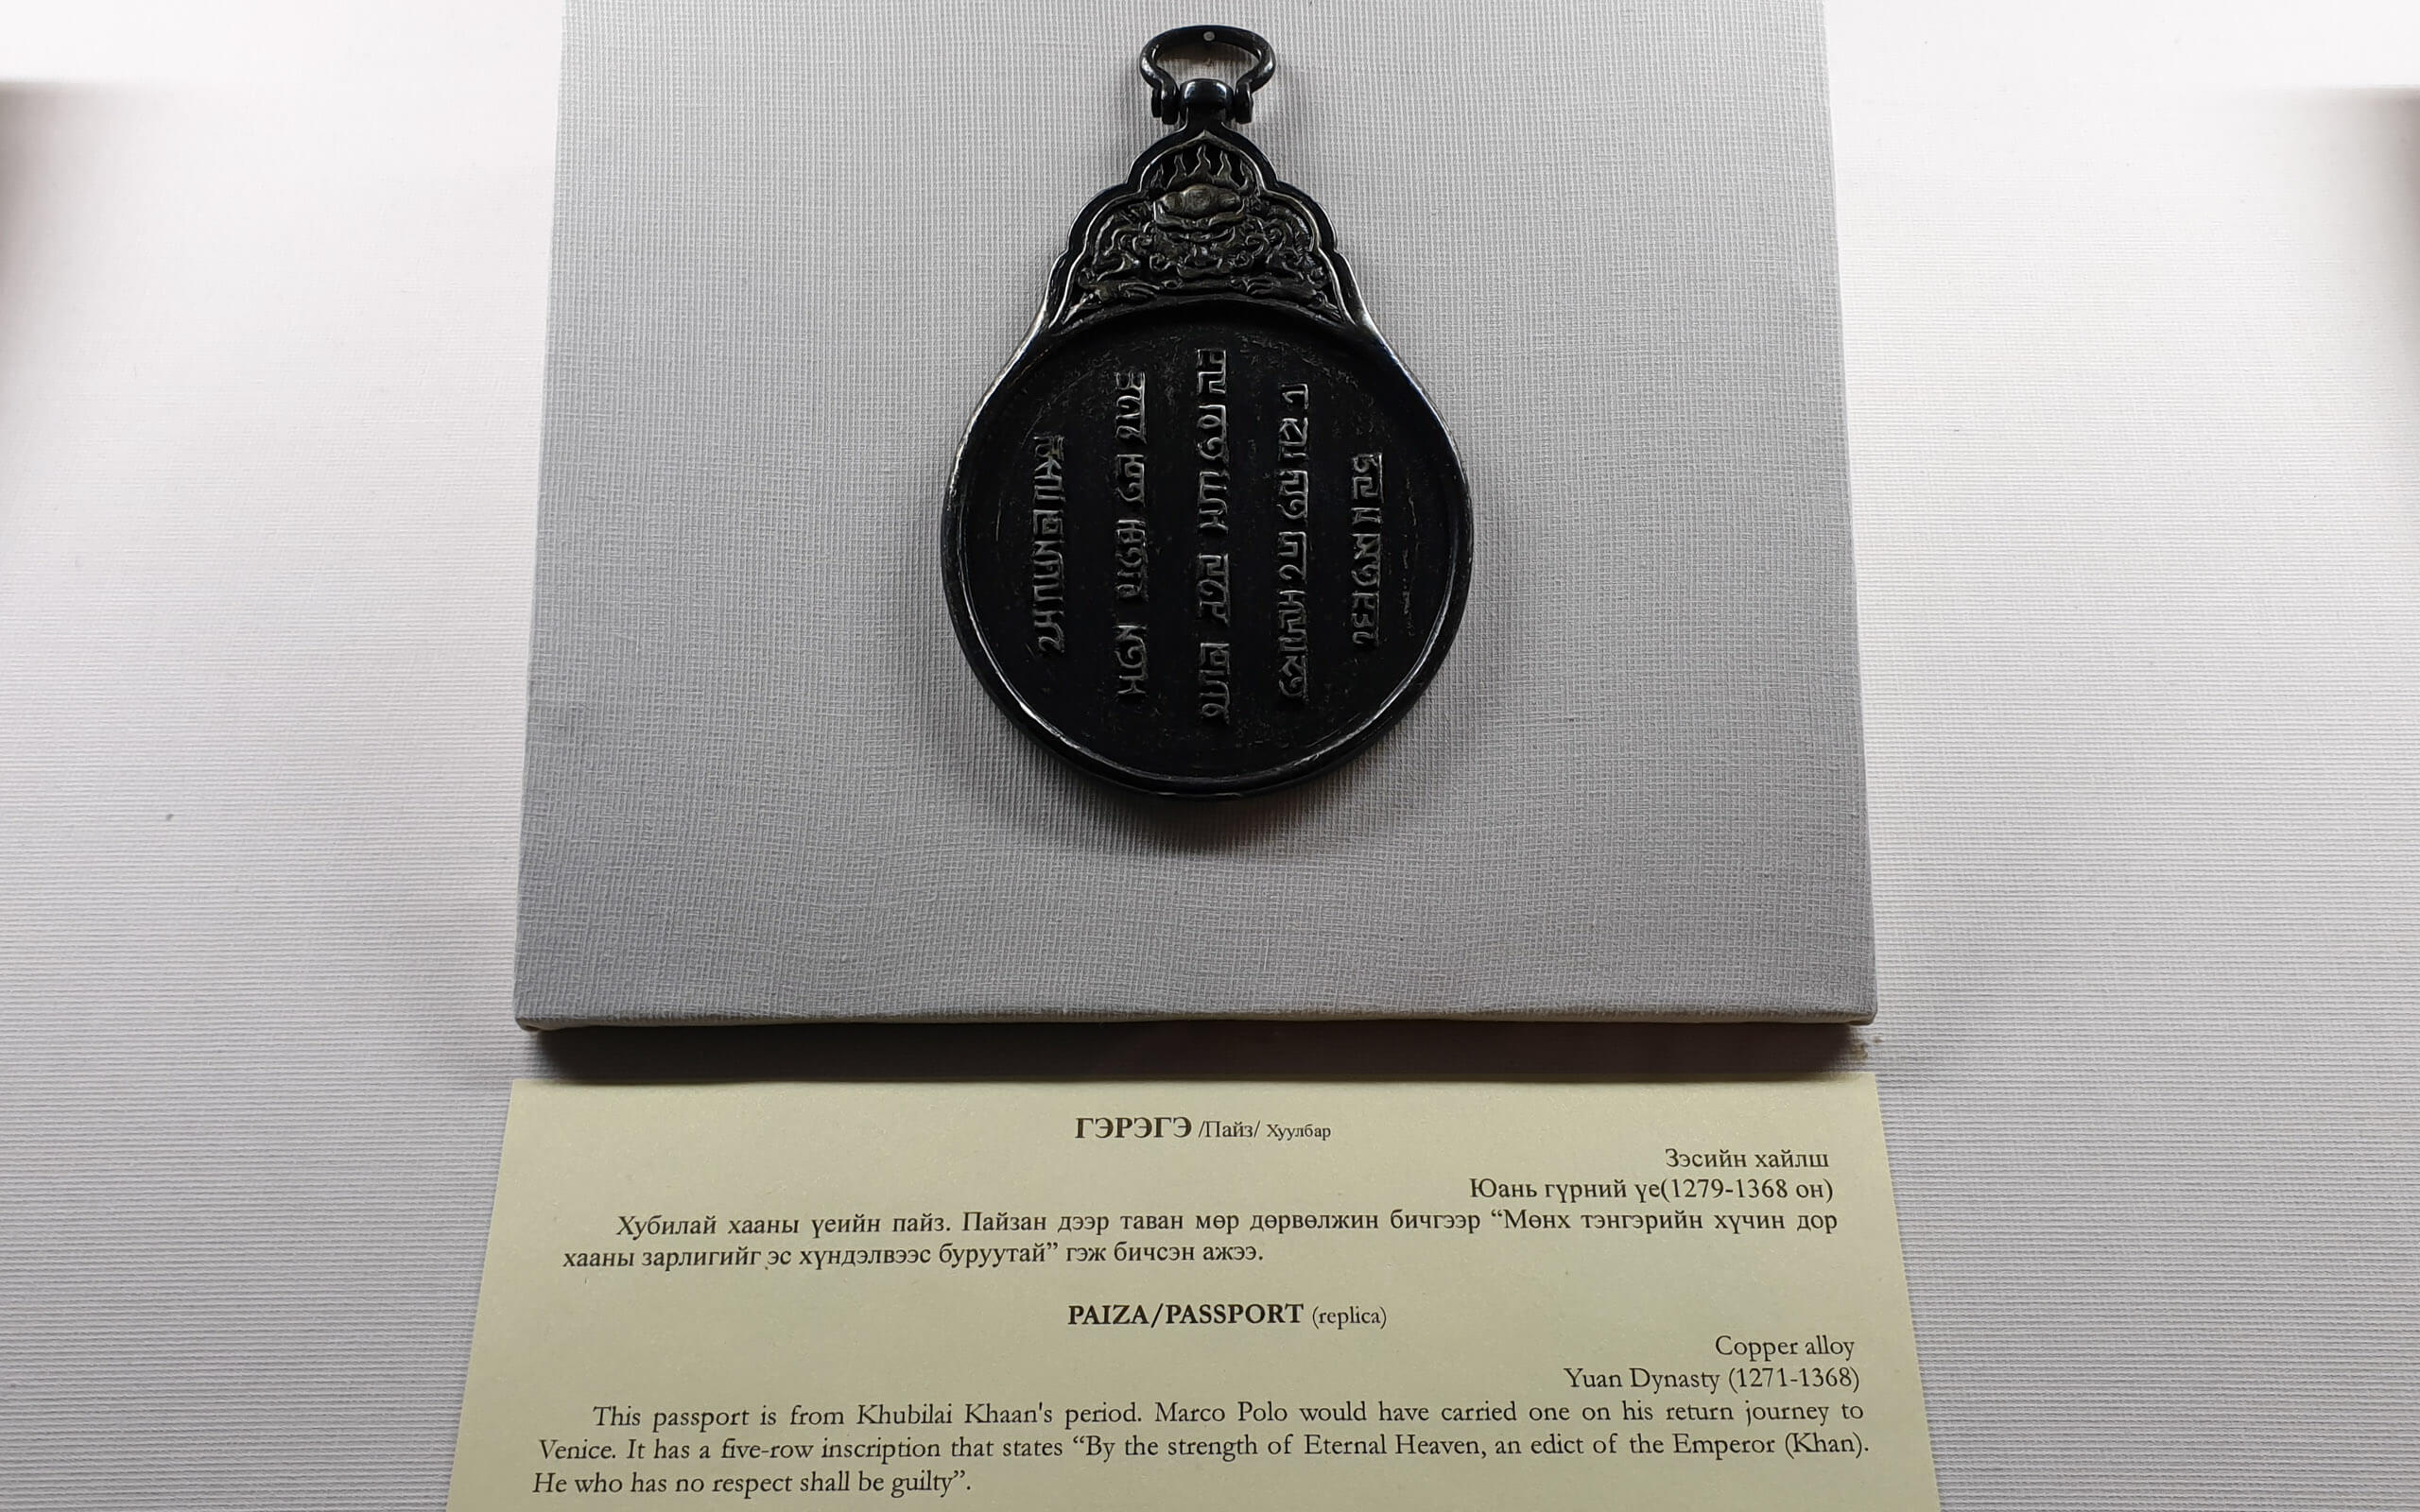 ГЭРЭГЭ /Пайз/ Хуулбар
Зэсийн хайлш
Юань гүрний үе(1279-1368 он)
Хубилай хааны үеийн пайз. Пайзан дээр таван мөр дөрвөлжин бичгээр “Мөнх тэнгэрийн хүчин дор
хааны зарлигийг эс хүндэлвээс буруутай” гэж бичсэн ажээ.
PAIZA/PASSPORT (replica)
Copper alloy
Yuan Dynasty (1271-1368)
This passport is from Khubilai Khaan's period. Marco Polo would have carried one on his return journey to
Venice. It has a five-row inscription that states “By the strength of Eternal Heaven, an edict of the Emperor (Khan).
He who has no respect shall be guilty”.